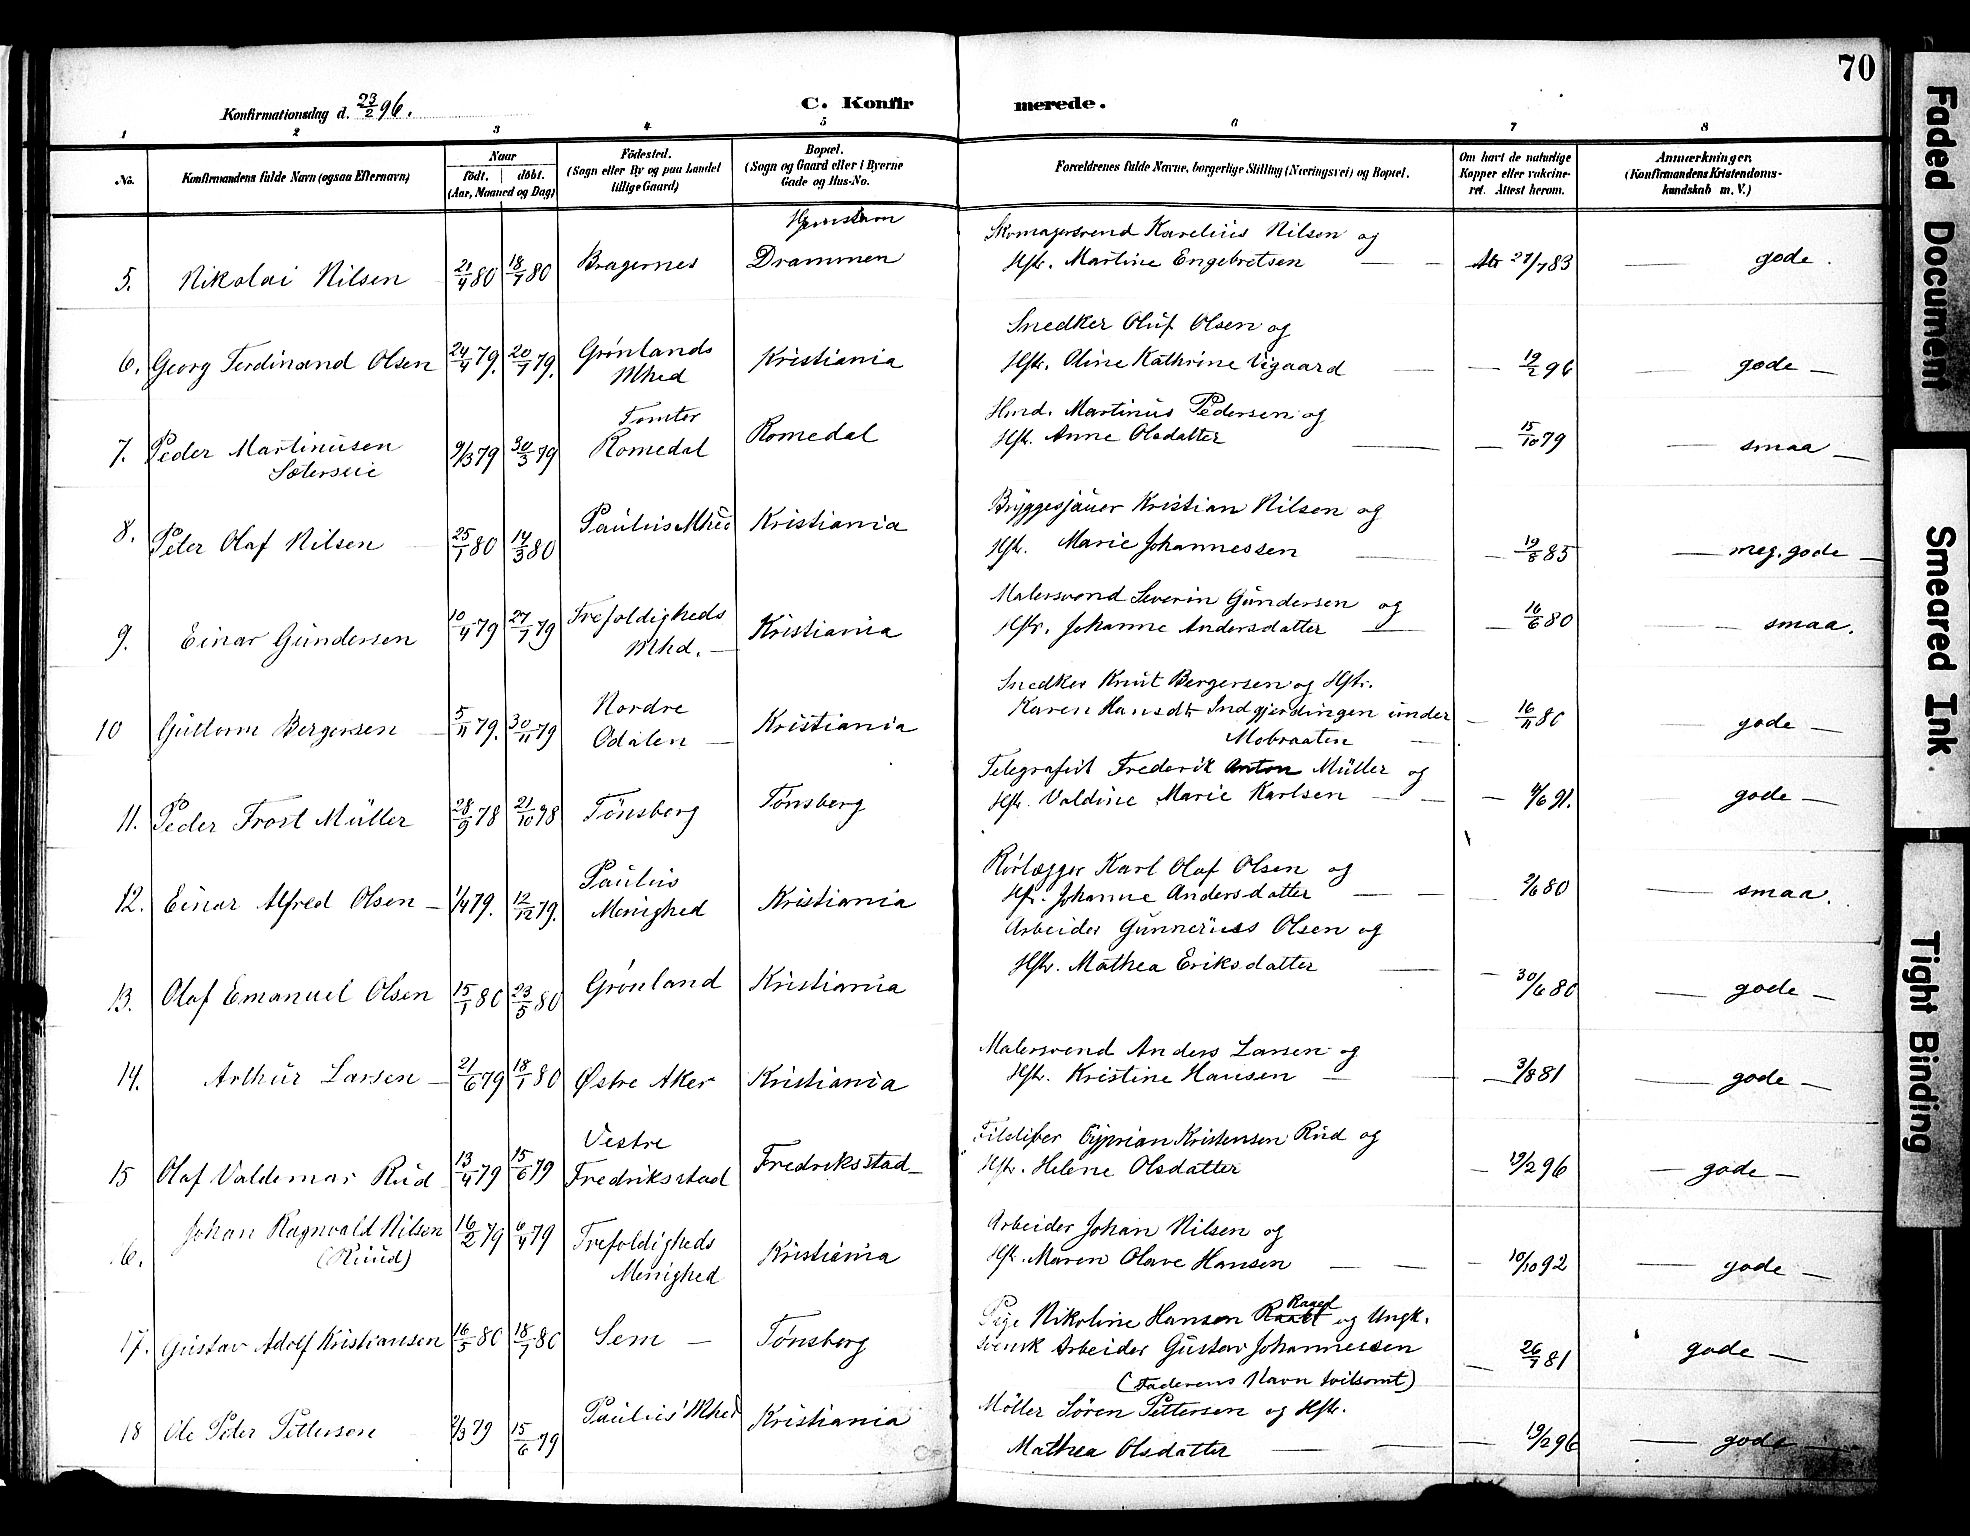 70
Konfirmationsdag d. 23/2 96.
C. Konfirmerede.
1 2 3 4 5 6 7 8
No.
Konfirmandens fulde Navn (ogsaa Efternavn)
Naar
født. | døbt.
(Aar, Maaned og Dag)
Fødested.
(Sogn eller By og paa Landet
tillige Gaard)
Bopæl.
(Sogn og Gaard eller i Byerne
Gade og Hus-No.
Forældrenes fulde Navne, borgerlige Stilling (Næringsvei) og Bopæl.
Om havt de naturlige
Kopper eller vakcine-
ret. Attest herom.
Anmærkninger.
(Konfirmandens Kristendoms-
kundskab m. V.)
5. Nikolai Nilsen 21/4 80 18/7 80 Bragernes Drammen
Skomagersvend Karelius Nilsen og
Hstr. Martine Engebretsen — 27/7 83 — gode.
6. Georg Ferdinand Olsen 24/4 79. 20/7 79. Grønlands
Mhed
Kristiania
Snedker Oluf Olsen og
Hstr. Oline Kathrine Vigaard — 19/2 96 — gode —
7. Peder Martinusen
Sæterseie
9/3 79 30/3 79 Tomter
Romedal
Romedal
Hmd. Martinus Pedersen og
Hstr. Anne Olsdatter — 15/10 79 — smaa —
8. Peter Olaf Nilsen 25/1 80 14/3 80 Paulus Mhed Kristiania
Bryggesjauer Kristian Nilsen og
Hstr. Marie Johannessen — 19/8 85 — meg. gode —
9. Einar Gundersen 10/4 79 27/7 79 Trefoldigheds
Mhd. —
Kristiania
Malersvend Severin Gundersen og
Hstr. Johanne Andersdatter — 16/6 80 — smaa.
10 Guttorm Bergersen 5/11 79. 30/11 79 Nordre
Odalen —
Kristiania
Snedker Knut Bergersen og Hstr.
Karen Hansdtr Indgjerdingen under
Mobraaten
— 16/11 80 — gode —
11. Peder Frost Müller 28/9 78 21/10 78 Tönsberg Tønsberg
Telegrafist Frederik Anton Müller og
Hstr. Valdine Marie Karlsen — 4/6 91. — gode —
12. Einar Alfred Olsen — 1/4 79. 12/12 79. Paulus
Menighed
Kristiania
Rörlægger Karl Olaf Olsen og
Hstr. Johanne Andersdatter — 2/6 80 — smaa.
13. Olaf Emanuel Olsen 15/1 80 23/5 80 Grønland Kristiania
Arbeider Gunnerius Olsen og
Hstr. Mathea Eriksdatter — 30/6 80 — gode —
14. Arthur Larsen — 21/6 79 18/1 80 Østre Aker Kristiania
Malersvend Anders Larsen og
Hstr. Kristine Hansen — 3/8 81 — gode —
15 Olaf Valdemar Rud 13/4 79 15/6 79 Vestre
Fredriksstad
Fredriksstad —
Cyprian Kristensen Rud og
Hstr. Helene Olsdatter — 19/2 96 — gode —
16. Johan Ragnvald Nilsen
(Ruud)
16/2 79 6/4 79 Trefoldigheds
Menighed
Kristiania
Arbeider Johan Nilsen og
Hstr. Maren Olave Hansen — 10/10 92 — gode —
17. Gustav Adolf Kristiansen 16/5 80 18/7 80 Sem — Tønsberg
Pige Nikoline Hansen og Ungk.
svensk Arbeider Gustav Johannessen
(Faderens Navn tvilsomt)
— 26/7 81 gode —
18 Ole Peter Pettersen 2/3 79 15/6 79 Paulus' Mhed Kristiania
Möller Sören Pettersen og Hstr.
Mathea Olsdatter — 19/2 96 — gode —
Faded Document
Smeared Ink.
Tight Binding